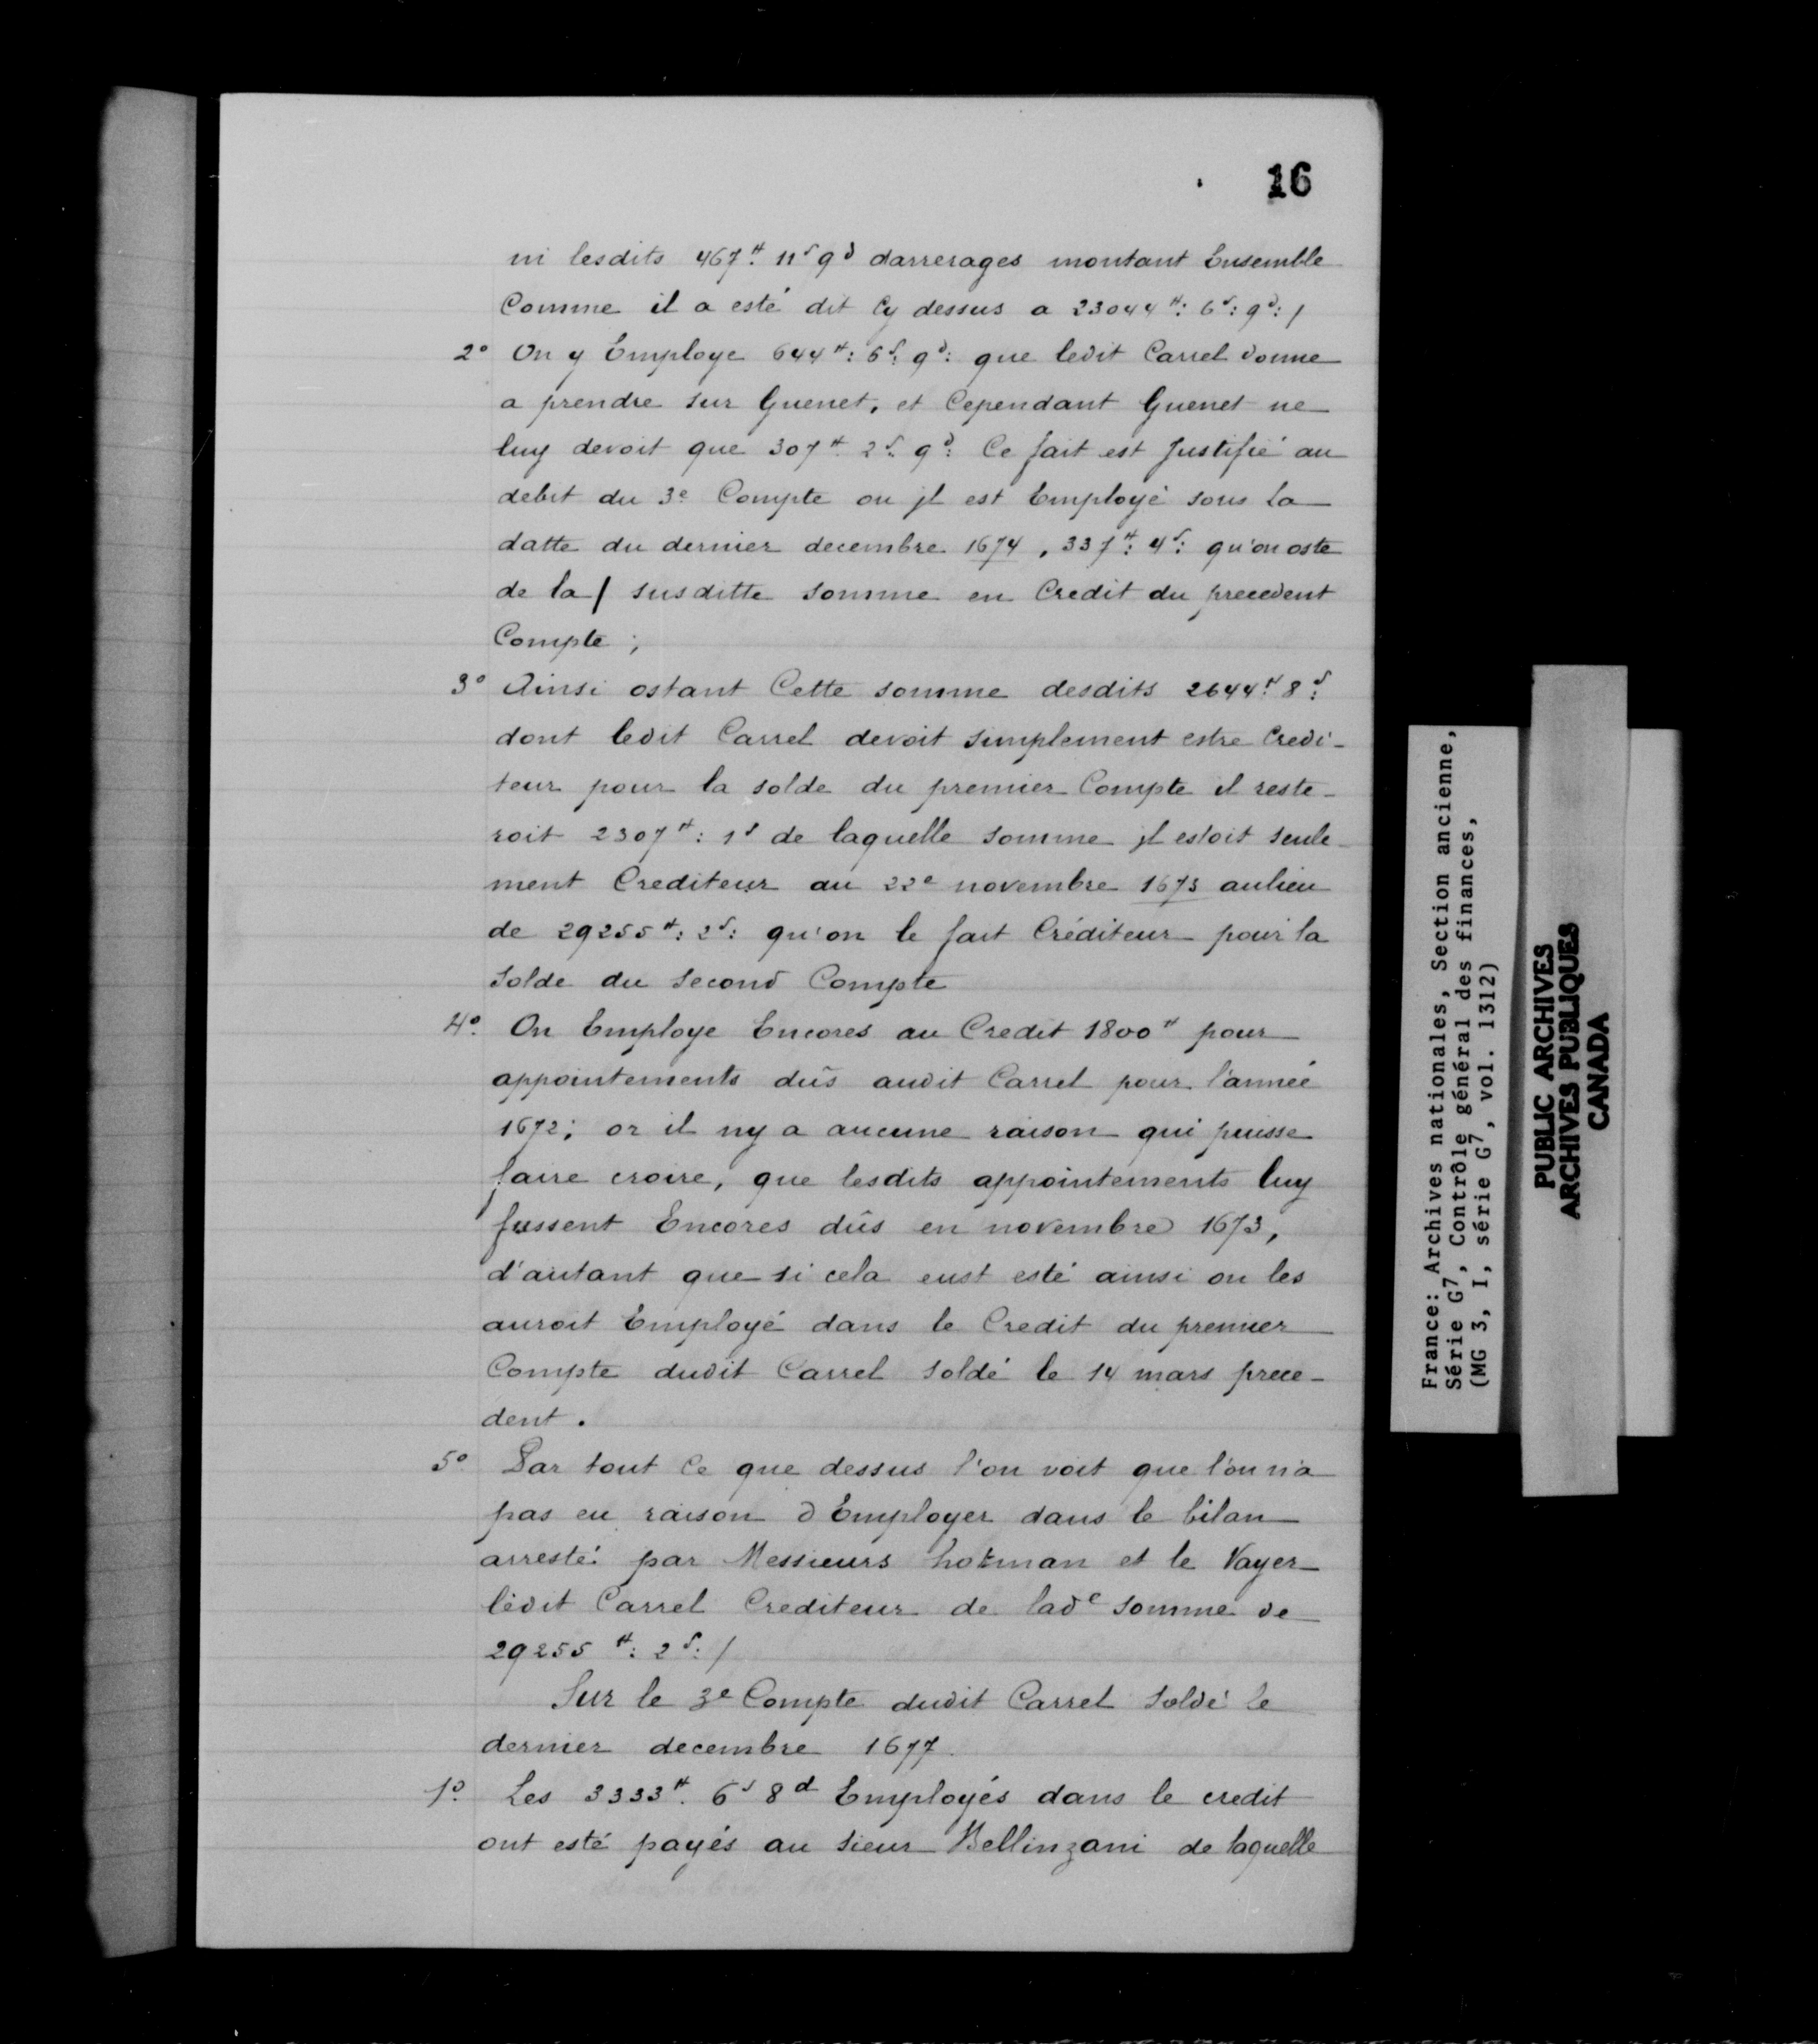 16
ni lesdits 467ᵗᵗ: 11ˢ 9ᵈ darrerages montant Ensemble
Comme il a esté dit Cy dessus a 23044ᵗᵗ: 6ˢ: 9ᵈ: /
2° On y Employe 644ᵗᵗ: 6ˢ: 9ᵈ: que ledit Carrel donne
a prendre sur Guenet, et Cependant Guenet ne
luy devoit que 307ᵗᵗ 2ˢ 9ᵈ: Ce fait est Justifié au
debit du 3e Compte ou jl est Employé sous la
datte du dernier decembre 1674, 337ᵗᵗ: 4ˢ: qu'on oste
de la / susditte somme en Credit du precedent
Compte;
3° Ainsi ostant Cette somme desdits 2644ᵗᵗ 8ˢ:
dont ledit Carrel devoit simplement estre Credi-
teur pour la solde du premier Compte il reste-
roit 2307ᵗᵗ: 1ˢ de laquelle somme jl estoit seule-
ment Crediteur au 22e novembre 1673 aulieu
de 29255ᵗᵗ: 2ˢ: qu'on le fait Créditeur pour la
solde du second Compte
4° On Employe Encores au Credit 1800ᵗᵗ pour
appointements dûs audit Carrel pour l'année
1672; or il ny a aucune raison qui puisse
faire croire, que lesdits appointements luy
fussent Encores dûs en novembre 1673,
d'autant que si cela eust esté ainsi on les
auroit Employé dans le Credit du premier
Compte dudit Carrel soldé le 14 mars prece-
dent.
5° Par tout Ce que dessus l'on voit que l'on n'a
pas eu raison d'Employer dans le bilan
arresté par Messieurs hotman et le Vayer
ledit Carrel Crediteur de ladᵉ somme de
29255ᵗᵗ: 2ˢ: /
Sur le 3e Compte dudit Carrel soldé le
dernier decembre 1677.
1° Les 3333ᵗᵗ. 6ˢ 8ᵈ Employés dans le credit
ont esté payés au sieur Bellinzani de laquelle
France: Archives nationales, Section ancienne,
Série G7, Contrôle général des finances,
(MG 3, I, série G7, vol. 1312)
PUBLIC ARCHIVES
ARCHIVES PUBLIQUES
CANADA